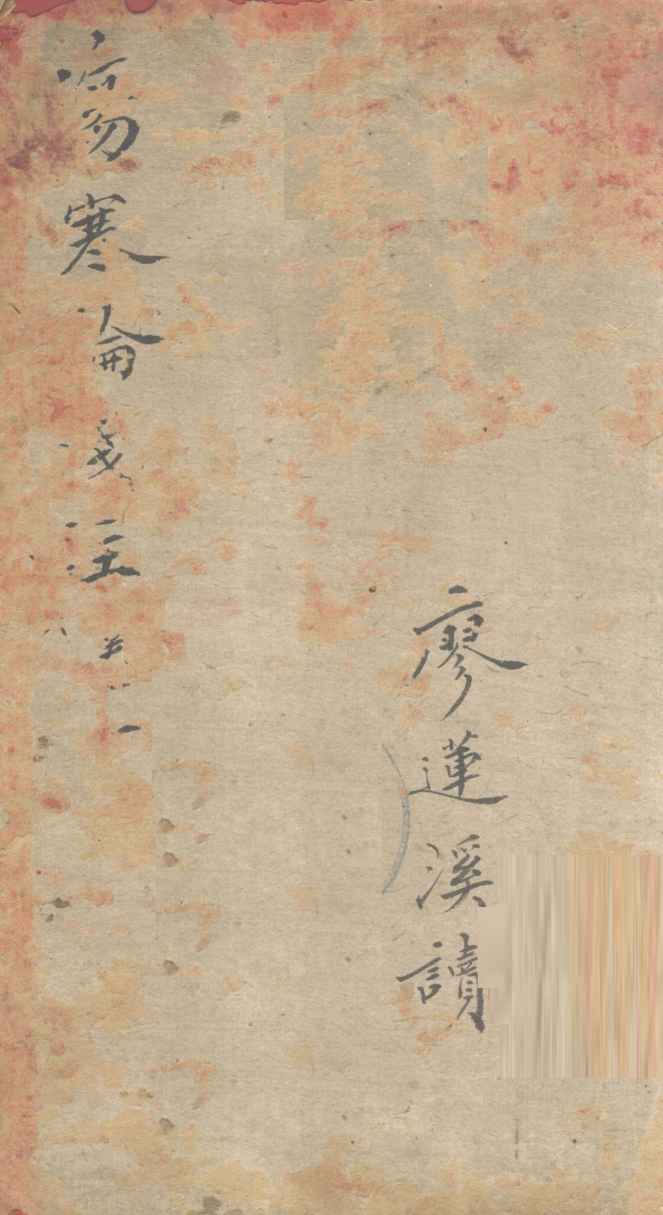 廖蓮溪讀
傷寒論淺注